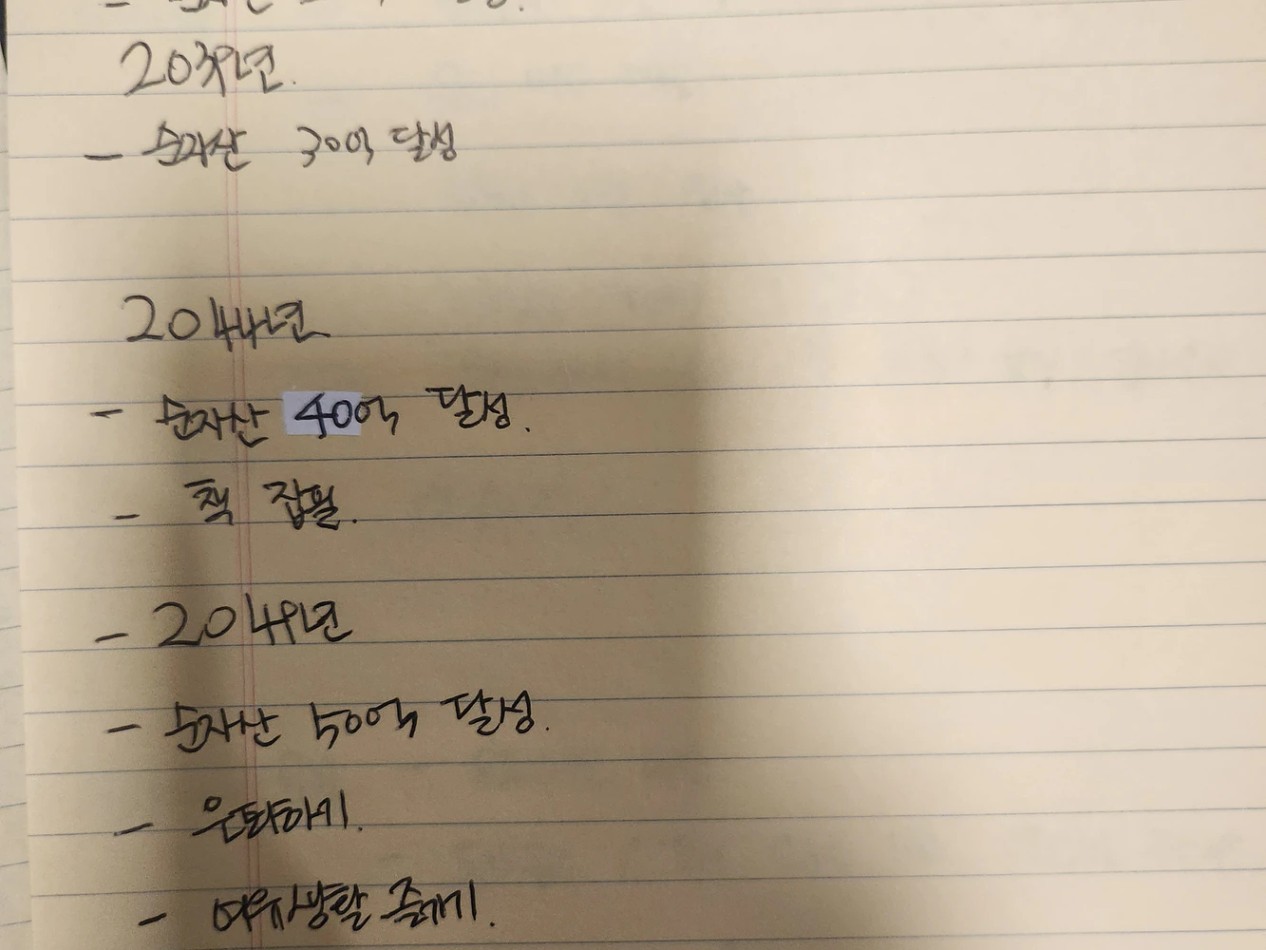 2039년.
- 순자산 30억 달성
2044년
- 순자산 40억 달성.
- 책 집필.
- 2049년
- 순자산 50억 달성.
- 은퇴하기.
- 여유생활 즐기기.